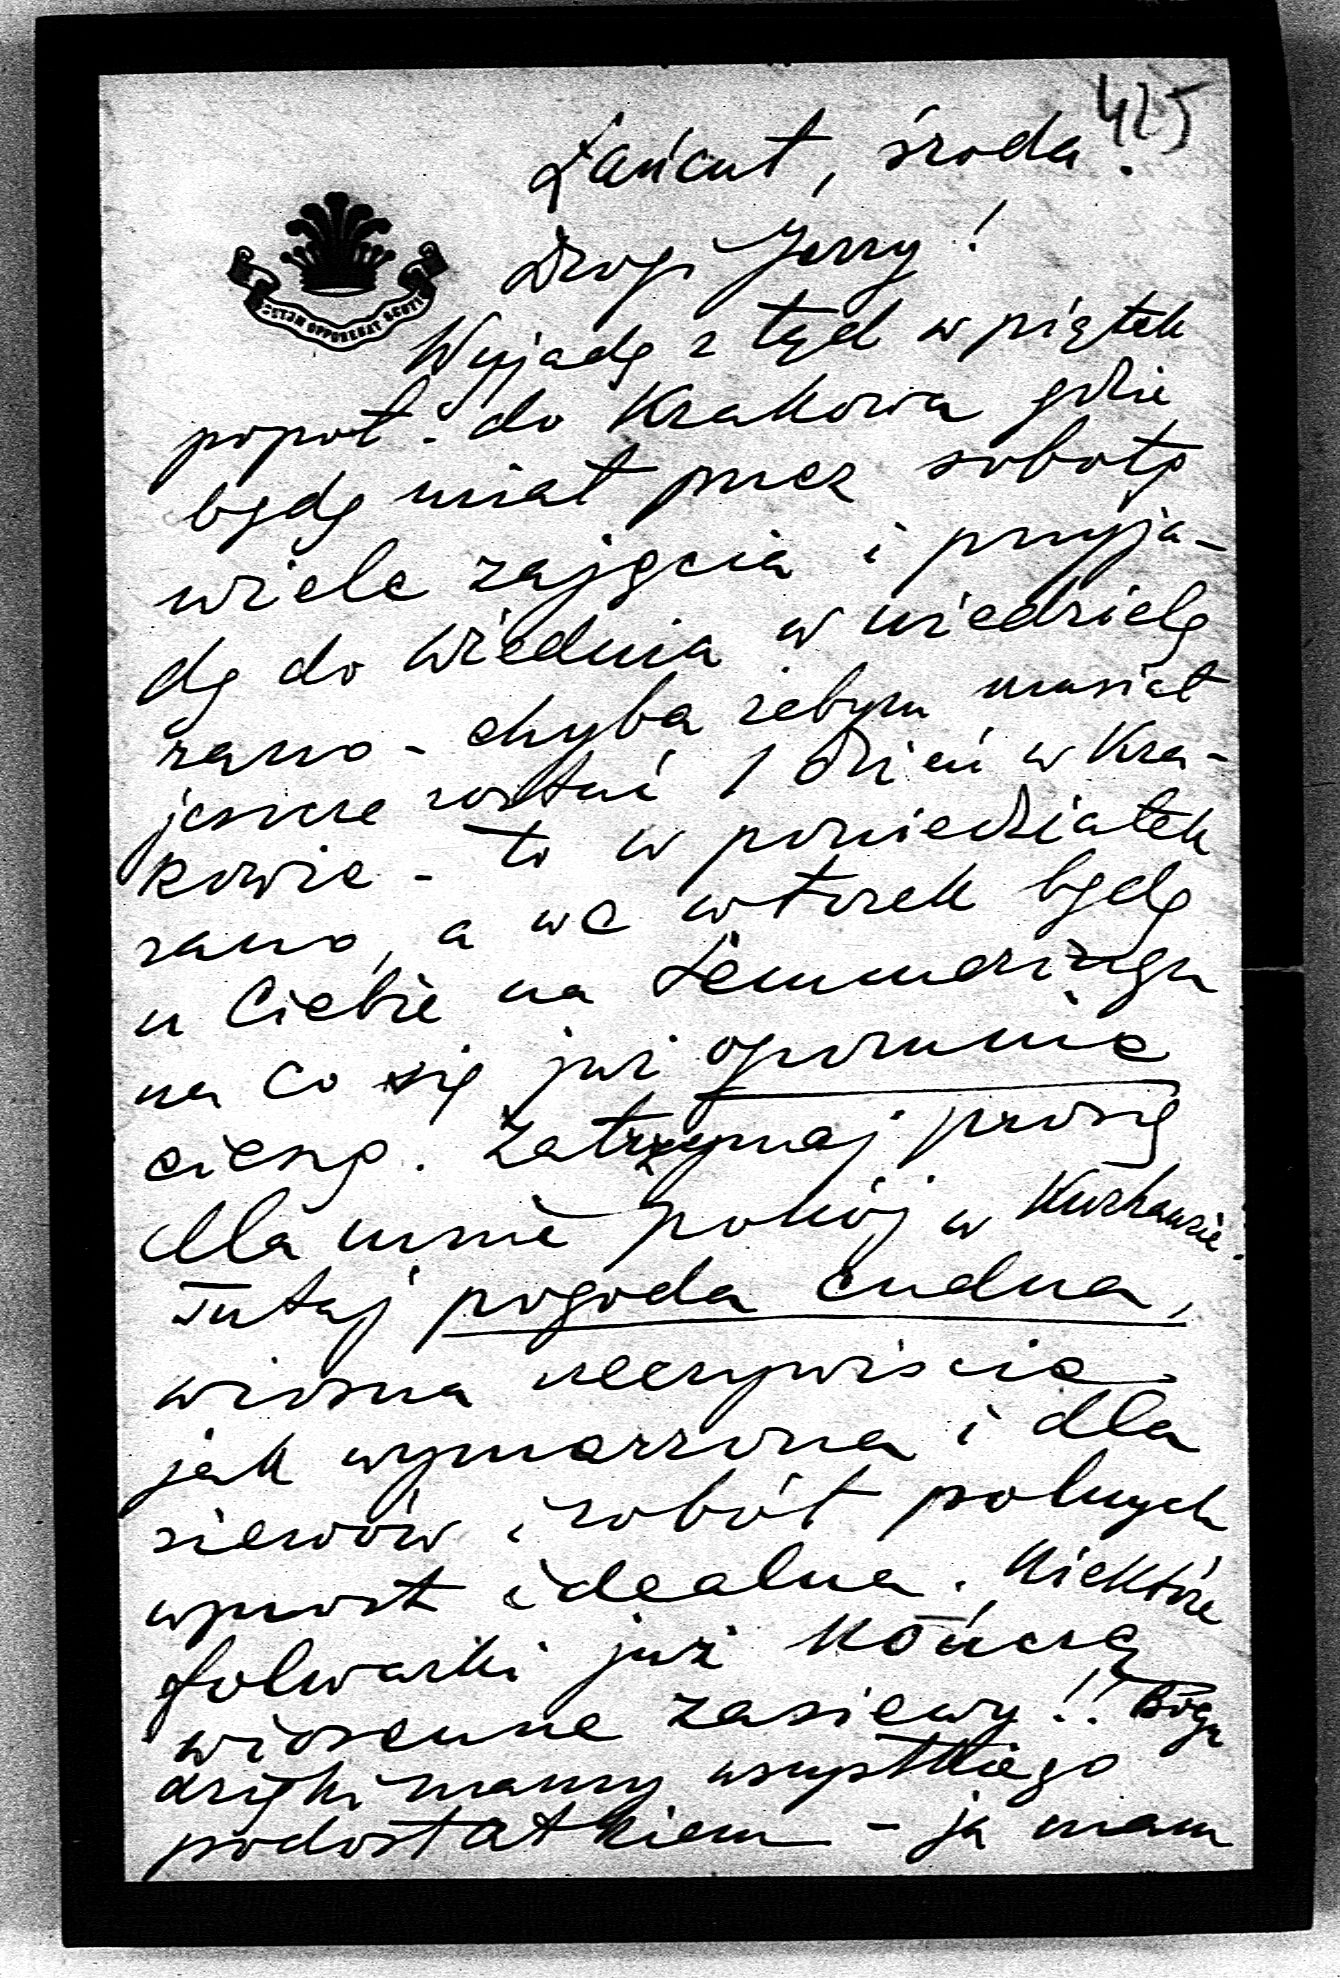 425
Łańcut, środa.
Drogi Jerzy!
OPPONERAT
Wyjadę z tąd w piątek
popoł. do Krakowa gdzie
będę miał przez sobotę
wiele zajęcia i przyja-
dę do Wiednia w niedzielę
rano - chyba żebym musiał
jeszcze zostać 1 dzień w Kra-
kowie - to w poniedziałek
rano, a we wtorek będę
u Ciebie na Semmeringu
na co się już ogromnie
cieszę. Zatrzymaj proszę
dla mnie pokój w Kurhausie.
Tutaj pogoda cudna,
wiosna rzeczywiście
jak wymarzona i dla
siewów i robót polnych
wprost idealna. Niektóre
folwarki już kończą
wiosenne zasiewy!! Bogu
dzięki mamy wszystkiego
podostatkiem - ja mam